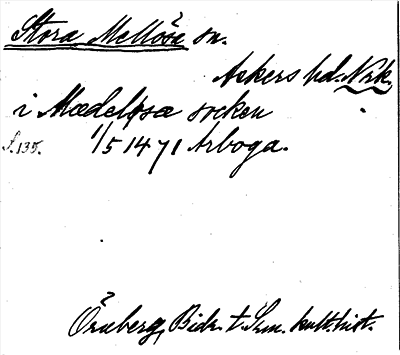 Stora Mellösa sn.
Askers hd. Nrk.
i Mædeløsa socken
S. 135. 1/5 1471 Arboga.
Öruberg, Bidr. t. Srm. kult. hist.